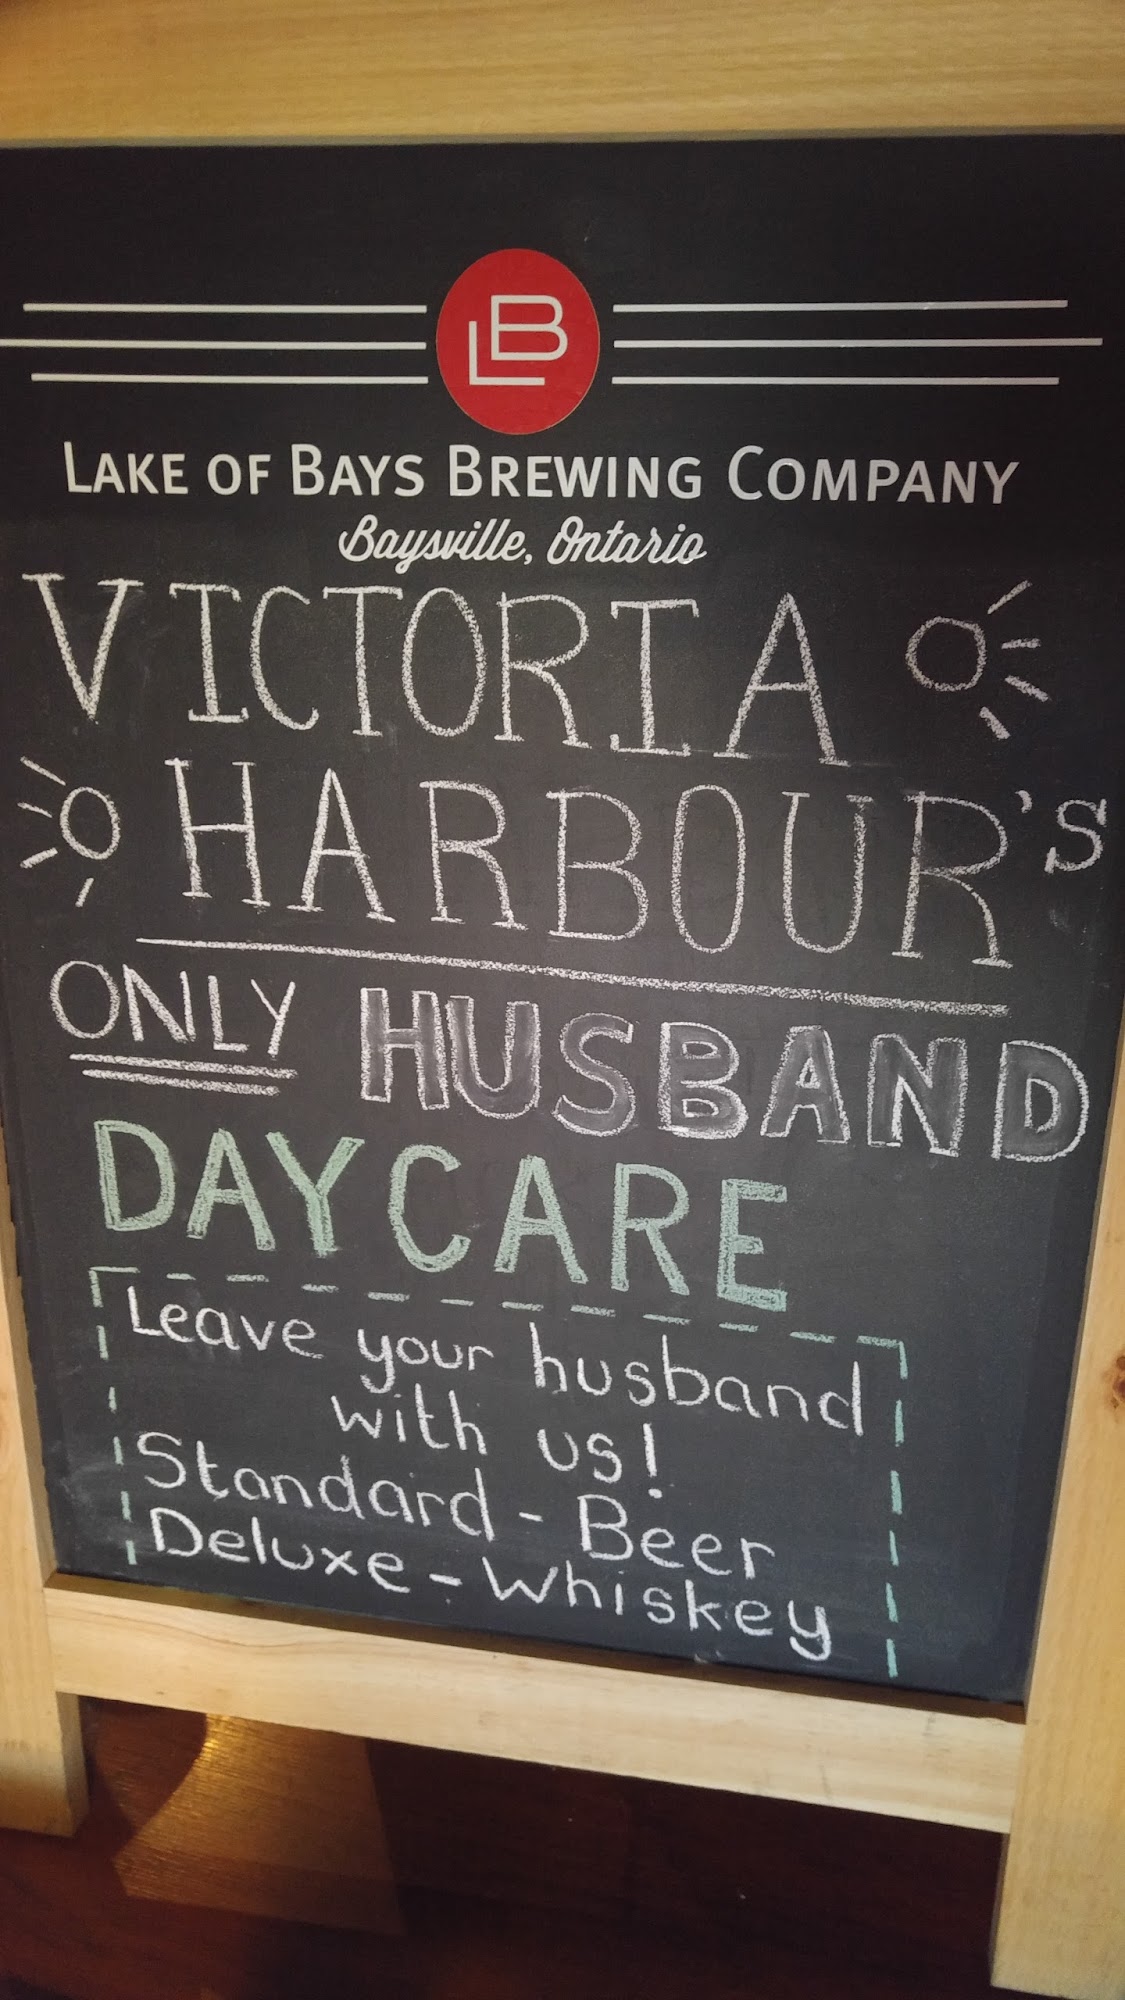 LB
LAKE OF BAYS BREWING COMPANY
Baysville, Ontario
VICTORIA
HARBOUR'S
ONLY HUSBAND
DAYCARE
Leave your husband
with us!
Standard - Beer
Deluxe - Whiskey